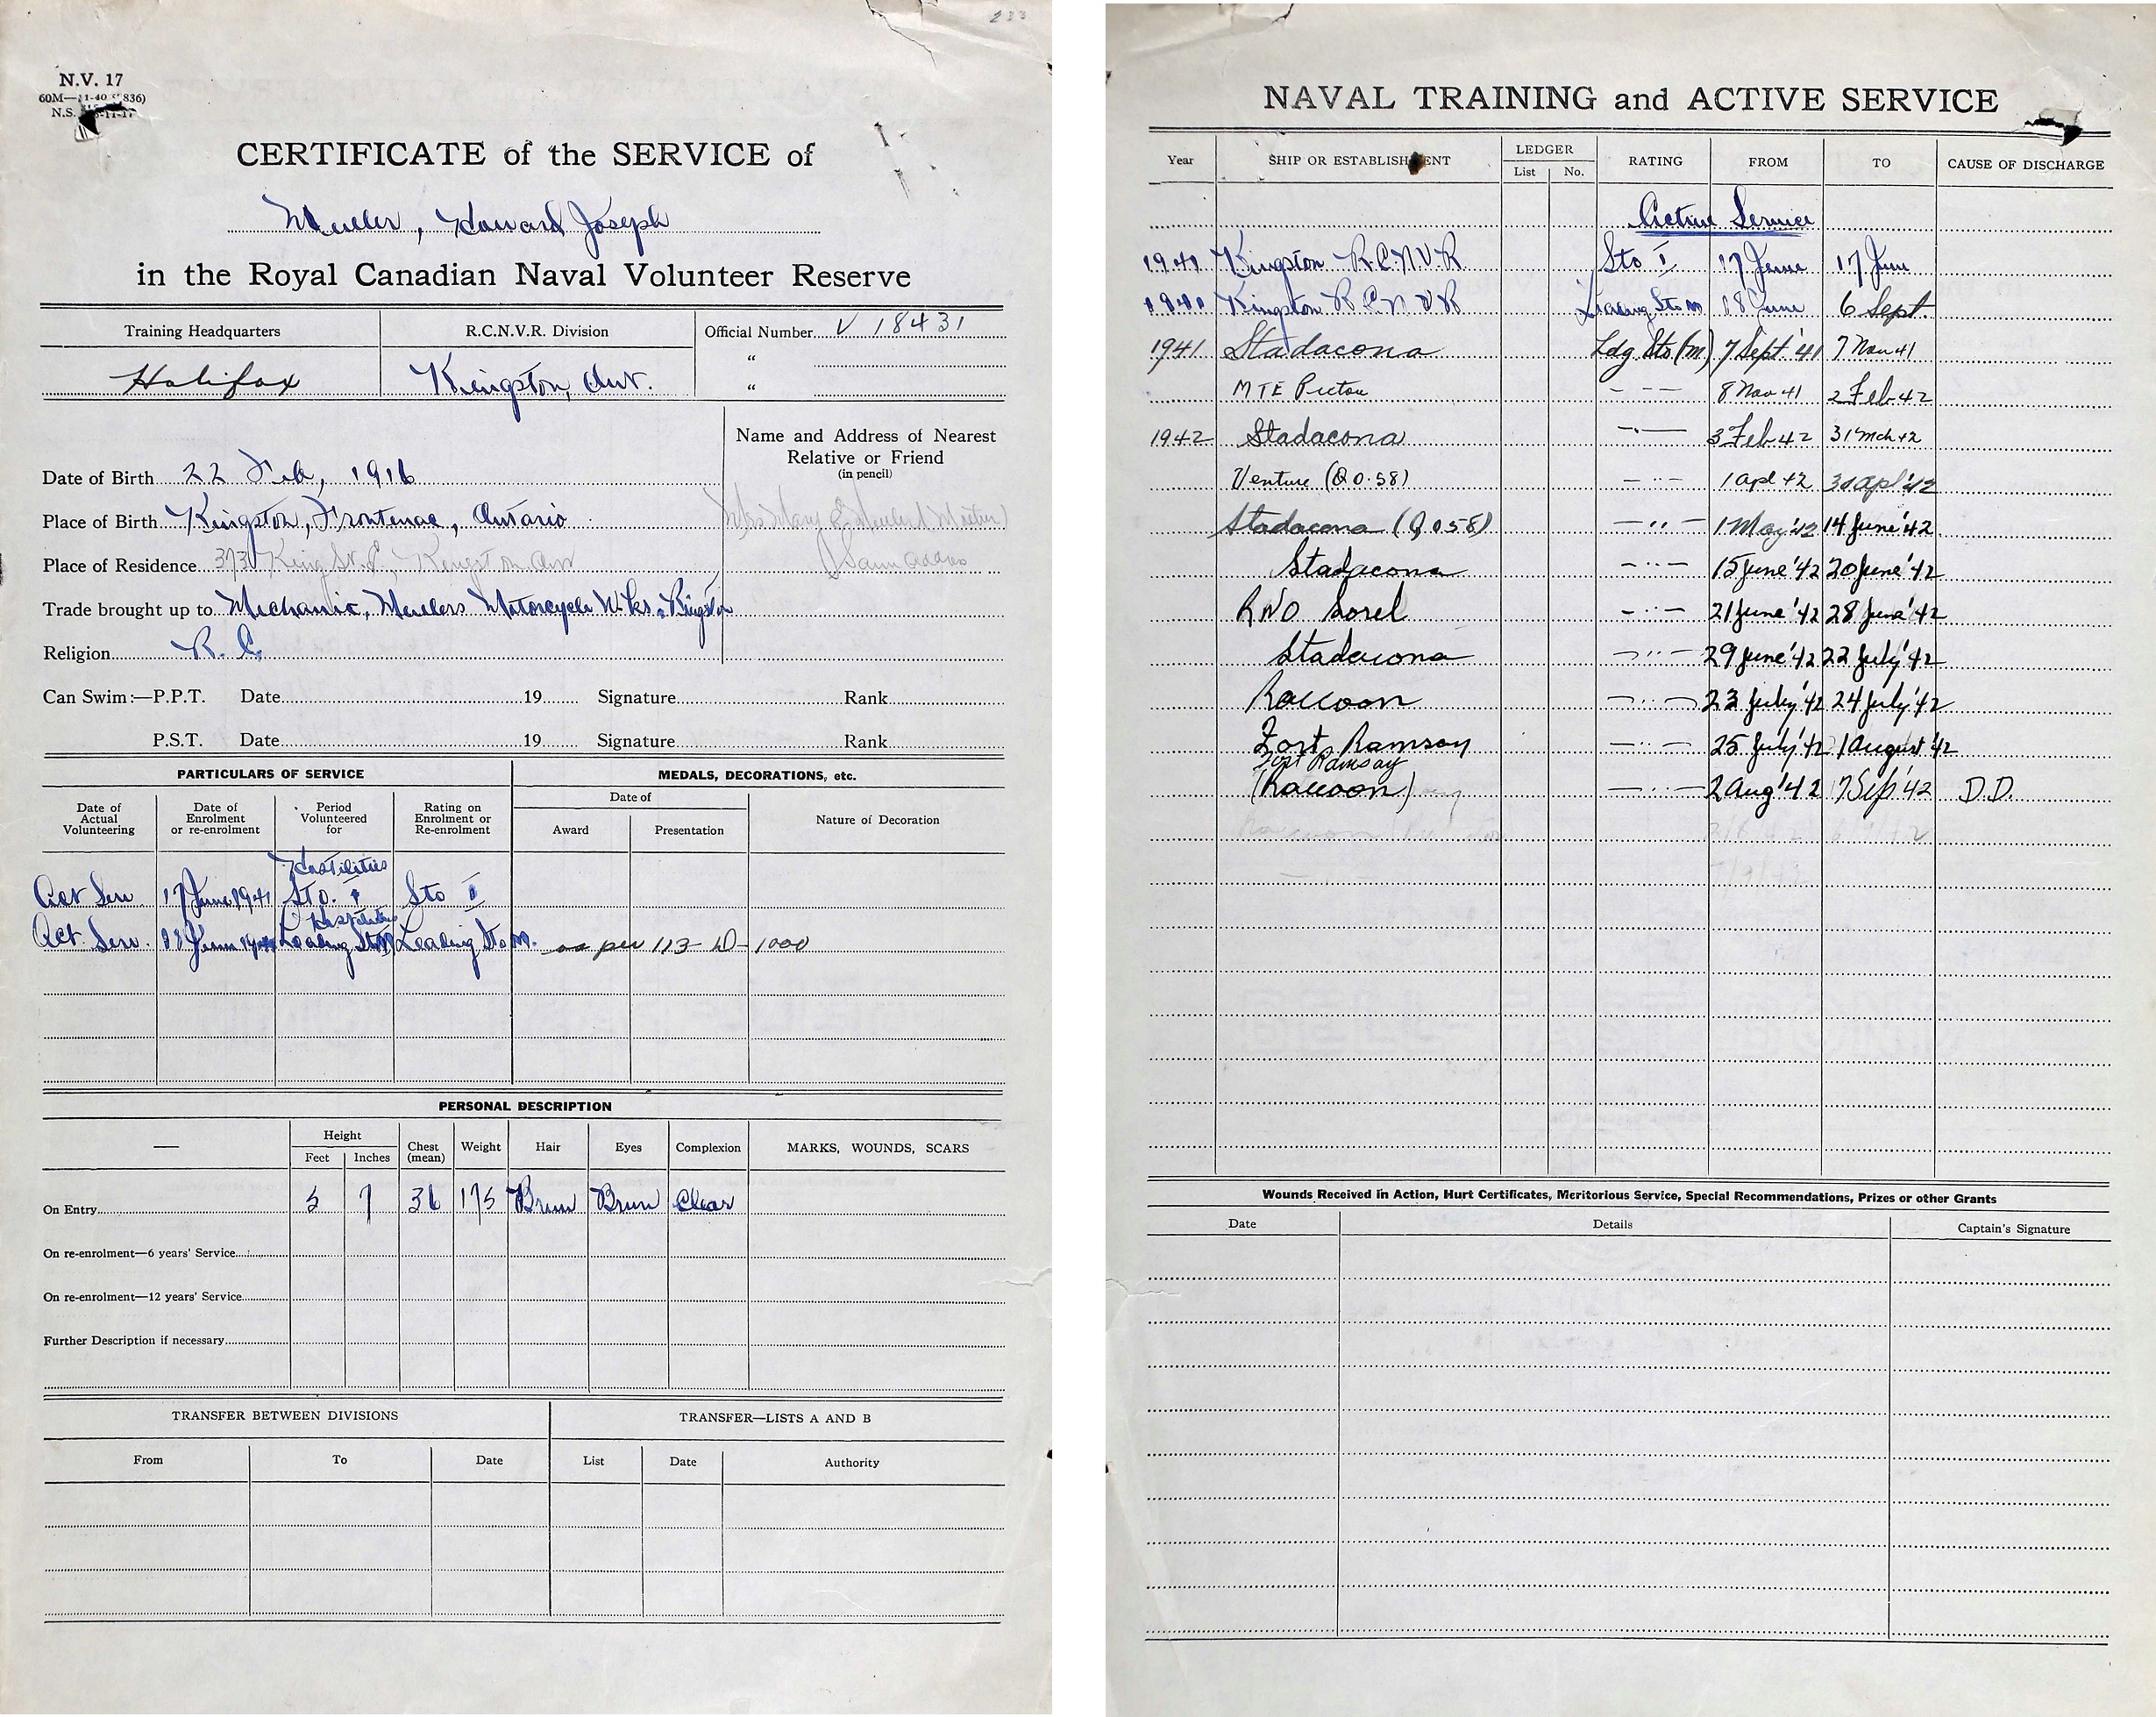 N.V. 17
N.S.
CERTIFICATE of the SERVICE of
Mueller, Howard Joseph
in the Royal Canadian Naval Volunteer Reserve
Training Headquarters R.C.N.V.R. Division Official Number V 18431
"
Halifax Kingston, Ont. "
Name and Address of Nearest
Relative or Friend
(in pencil)
Date of Birth 22 Feb, 1916
Place of Birth Kingston, Frontenac, Ontario
Place of Residence 373 King St. E, Kingston Ont
Same address
Trade brought up to Mechanic, Muellers Motorcycle Wks. Kingston
Religion R.C.
Can Swim:—P.P.T. Date 19 Signature Rank
P.S.T. Date 19 Signature Rank
PARTICULARS OF SERVICE MEDALS, DECORATIONS, etc.
Date of Actual Volunteering Date of Enrolment or re-enrolment Period Volunteered for Rating on Enrolment or Re-enrolment Date of Award Presentation Nature of Decoration
Hostilities
Act Serv. 17 June 1941 Sto. I Sto I
Hostilities
Act Serv. 18 June 1941 Leading Sto M Leading Sto M. as per 113-D-1000
PERSONAL DESCRIPTION
— Height Feet Inches Chest (mean) Weight Hair Eyes Complexion MARKS, WOUNDS, SCARS
On Entry 5 7 36 175 Brun Brun Clear
On re-enrolment—6 years' Service
On re-enrolment—12 years' Service
Further Description if necessary
TRANSFER BETWEEN DIVISIONS TRANSFER—LISTS A AND B
From To Date List Date Authority
NAVAL TRAINING and ACTIVE SERVICE
Year SHIP OR ESTABLISHMENT LEDGER List No. RATING FROM TO CAUSE OF DISCHARGE
Active Service
1941 Kingston R.C.N.V.R Sto I 17 June 17 June
1941 Kingston R.C.N.V.R Leading Sto M 18 June 6 Sept.
1941 Stadacona Ldg Sto (M) 7 Sept '41 7 Nov 41
MTE Pictou — ·· — 8 Nov 41 2 Feb 42
1942 Stadacona — ·· — 3 Feb 42 31 Mch 42
Venture (Q 058) — ·· — 1 Apl 42 30 Apl '42
Stadacona (Q 058) — ·· — 1 May '42 14 June '42
Stadacona — ·· — 15 June '42 20 June '42
RNO Sorel — ·· — 21 June '42 28 June '42
Stadacona — ·· — 29 June '42 22 July '42
Raccoon — ·· — 23 July '42 24 July '42
Fort Ramsay — ·· — 25 July '42 1 August '42
Fort Ramsay
(Raccoon) — ·· — 2 Aug '42 7 Sep '42 D.D.
Wounds Received in Action, Hurt Certificates, Meritorious Service, Special Recommendations, Prizes or other Grants
Date Details Captain's Signature